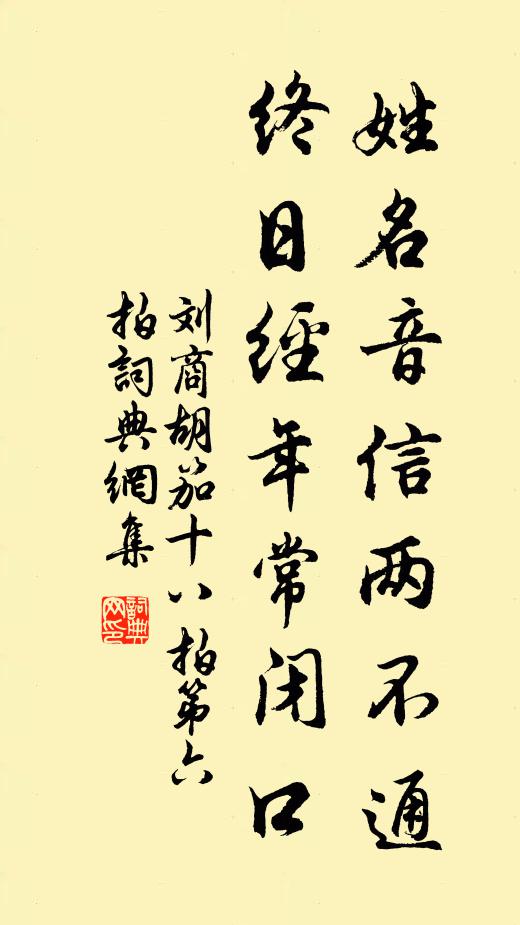 姓名音信两不通
终日經年常闭口
刘商胡笳十八拍第六
拍詞典網集
詞典
网印